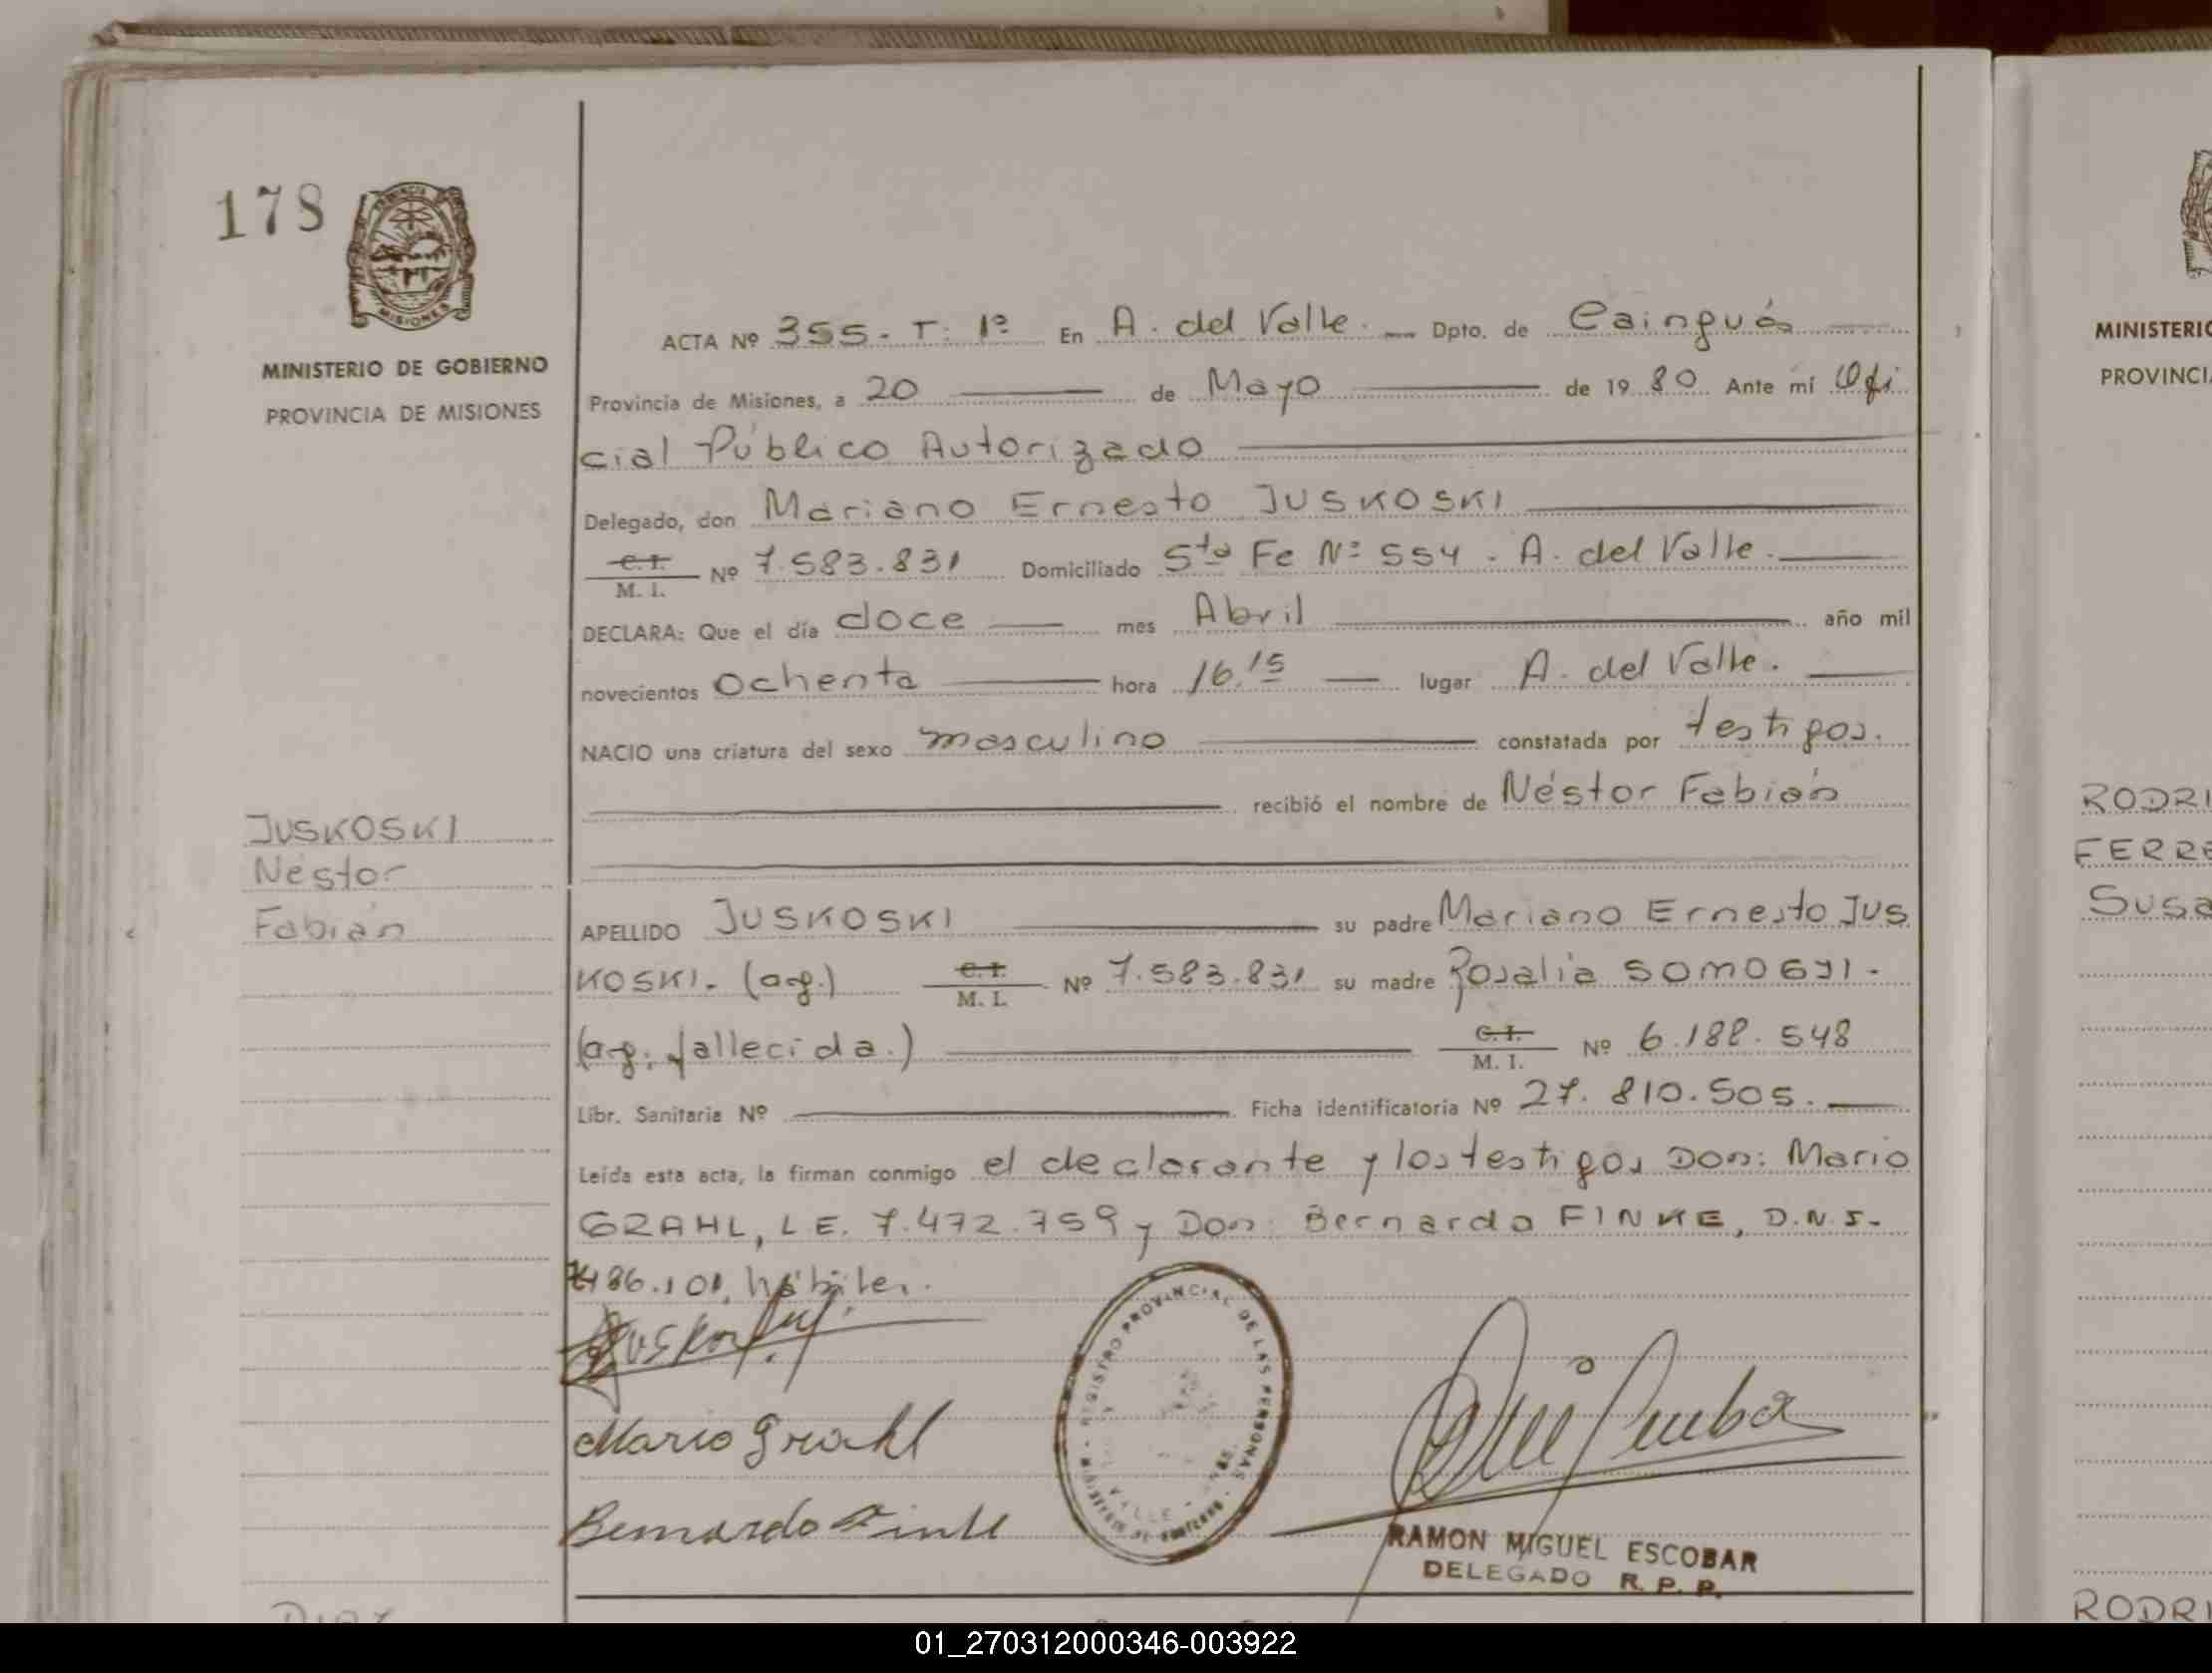 178
PROVINCIA
MISIONES
MINISTERIO DE GOBIERNO
PROVINCIA DE MISIONES
ACTA Nº 355 - T: 1º En A. del Valle. Dpto. de Cainguás
Provincia de Misiones, a 20 de Mayo de 1980 Ante mí Ofi
cial Público Autorizado
Delegado, don Mariano Ernesto JUSKOSKI
C. I.
M. I. Nº 7.583.831 Domiciliado Sta Fe Nº 554 - A. del Valle.
DECLARA: Que el día doce mes Abril año mil
novecientos Ochenta hora 16.15 lugar A. del Valle.
NACIO una criatura del sexo masculino constatada por testigos.
recibió el nombre de Néstor Fabián
JUSKOSKI
Néstor
Fabián
APELLIDO JUSKOSKI su padre Mariano Ernesto JUS
KOSKI. (arg.) C. I. M. I. Nº 7.583.831 su madre Rosalia SOMOGYI.
(arg. fallecida.) C. I. M. I. Nº 6.188.548
Libr. Sanitaria Nº Ficha identificatoria Nº 27.810.505.
Leída esta acta, la firman conmigo el declarante y los testigos Don: Mario
GRAHL, L E. 7.472.759 y Don: Bernardo FINKE, D.N.I.
7486.101, hábiles.
Mario Grahl
Bernardo Finke
REGISTRO PROVINCIAL DE LAS PERSONAS
RAMON MIGUEL ESCOBAR
DELEGADO R. P. P.
MINISTERIO
PROVINCIA
RODRI
FERRE
Susa
RODRI
01_270312000346-003922